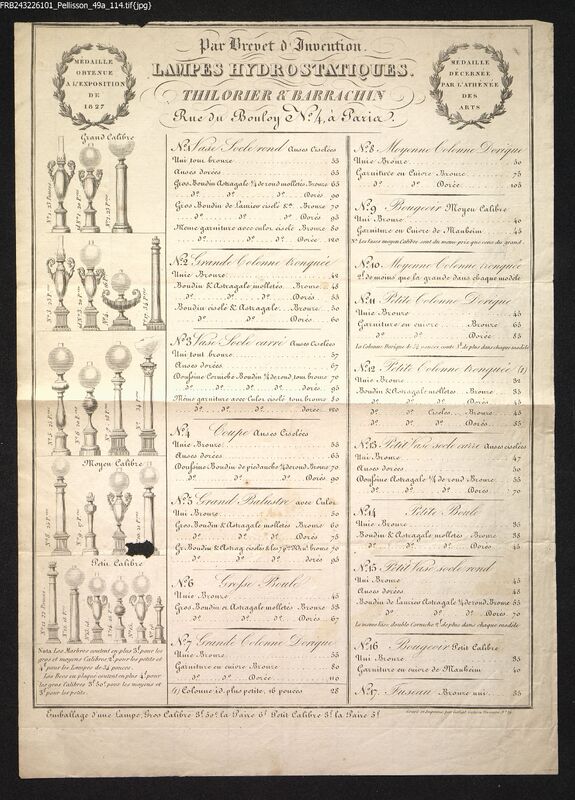 FRB243226101_Pellisson_49a_114.tif{jpg}
MÉDAILLE
OBTENUE
A L'EXPOSITION
DE
1827
Par Brevet d'Invention.
LAMPES HYDROSTATIQUES.
THILORIER & BARRACHIN
Rue du Bouloy N.º 4, à Paris.
MÉDAILLE
DÉCERNÉE
PAR L'ATHÉNÉE
DES
ARTS
Grand Calibre
Moyen Calibre
Petit Calibre
Nota. Les Marbres coutent en plus 3.f pour les
gros et moyens Calibres, 2.f pour les petits et
4.f pour les Lampes de 34 pouces.
Les Becs en plaqué coutent en plus 4.f pour
les gros Calibres 3.f 50.c pour les moyens et
3.f pour les petits.
N.º 1 Vase Socle rond Anses Ciselées
Uni tout bronze 55
Anses dorées 65
Gros Boudin Astragale ¼ de rond molletés Bronze 65
d.º d.º d.º Dorés 90
Gros Boudin de Laurier ciselé &.ª Bronze 70
d.º d.º d.º Dorés 95
Même garniture avec culor ciselé Bronze 80
d.º d.º d.º dorée 120
N.º 2 Grande Colonne tronquée
Unie Bronze 42
Boudin & Astragale molletés Bronze 48
d.º d.º d.º Dorés 55
Boudin ciselé & Astragale Bronze 50
d.º d.º d.º Dorés 60
N.º 3 Vase Socle carré Anses Ciselées
Uni tout bronze 57
Anses dorées 67
Doussine Corniche Boudin ¼ de rond, tout bronze 70
d.º d.º d.º d.º dorés 95
Même garniture avec Culor ciselé tout bronze 80
d.º d.º d.º dorée 120
N.º 4 Coupe Anses Ciselées
Unie Bronze 55
Anses dorées 65
Doussine Boudin de piedouche ¼ de rond Bronze 70
d.º d.º d.º d.º Dorés 90
N.º 5 Grand Balustre avec Culor
Uni Bronze 50
Gros Boudin & Astragale molletés Bronze 60
d.º d.º d.º Dorés 75
d.º d.º d.º dorés 95
N.º 6 Grosse Boule
Unie Bronze 45
Gros Boudin & Astragale molletés Bronze 55
d.º d.º d.º Dorés 67
N.º 7 Grande Colonne Dorique
Unie Bronze 55
Garniture en cuivre Bronze 80
d.º d.º Dorée 110
(1) Colonne id. plus petite, 16 pouces 28
N.º 8 Moyenne Colonne Dorique
Unie Bronze 50
Garniture en Cuivre Bronze 75
d.º d.º Dorée 105
N.º 9 Bougeoir Moyen Calibre
Uni Bronze 40
Garniture en Cuivre de Manheim 45
N.ª Les Vases moyen Calibre sont du même prix que ceux du grand
N.º 10 Moyenne Colonne tronquée
2.f de moins que la grande dans chaque modèle
N.º 11 Petite Colonne Dorique
Unie Bronze 45
Garniture en cuivre Bronze 65
d.º d.º Dorée 85
La Colonne Dorique de 34 pouces coute 5.f de plus dans chaque modèle
N.º 12 Petite Colonne tronquée (1)
Unie Bronze 32
Boudin & Astragale molletés Bronze 38
d.º d.º d.º Dorés 45
d.º d.º Ciselés Bronze 45
d.º d.º d.º Dorés 55
N.º 13 Petit Vase socle carré Anses ciselées
Uni Bronze 47
Anses dorées 50
Doussine Astragale ¼ de rond Bronze 55
d.º d.º d.º Dorés 70
N.º 14 Petite Boule
Unie Bronze 35
Boudin & Astragale molletés Bronze 38
d.º d.º d.º Dorés 45
N.º 15 Petit Vase socle rond
Uni Bronze 45
Anses dorées 48
Boudin de Laurier Astragale ¼ de rond Bronze 55
d.º d.º d.º Dorés 70
Le même Vase double Corniche 2.f de plus dans chaque modèle
N.º 16 Bougeoir Petit Calibre
Uni Bronze 35
Garniture en cuivre de Manheim 40
N.º 17 Fuseau Bronze uni 35
Emballage d'une Lampe, Gros Calibre 3.f 50.c la Paire 6.f Petit Calibre 3.f la Paire 5.f